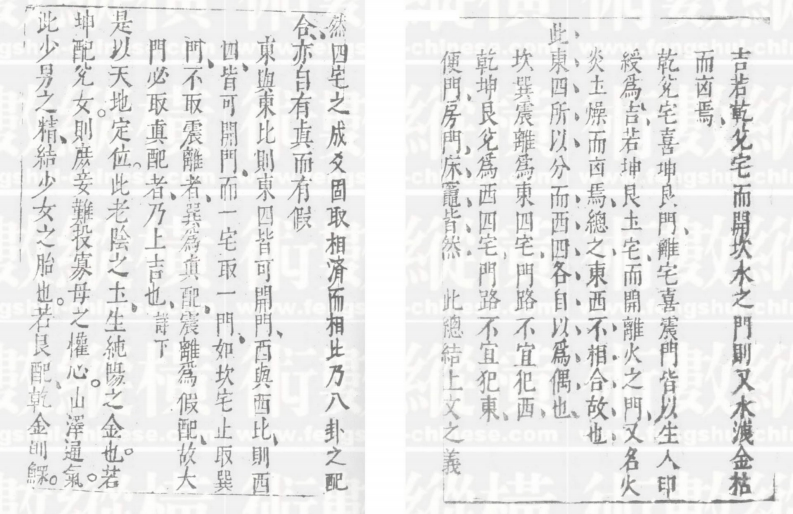 吉若乾兌宅而開坎水之門則又水洩金枯
而凶焉
乾兌宅喜坤艮門離宅喜震門皆以生人印
綬為吉若坤艮土宅而開離火之門又名火
炎土燥而凶焉總之東西不相合故也
此東四所以分而西四各自以為偶也
坎巽震離為東四宅門路不宜犯西
乾坤艮兌為西四宅門路不宜犯東
便門房門床竈皆然 此總結上文之義
然四宅之成爻固取相濟而相比乃八卦之配
合亦自有眞而有假
東與東比則東四皆可開門西與西比則西
四皆可開門而一宅取一門如坎宅止取巽
門不取震離者巽為眞配震離為假配故大
門必取眞配者乃上吉也 詩下
是以天地定位此老陰之土生純陽之金也若
坤配兌女則庶妾難投寡母之懽心山澤通氣
此少男之精結少女之胎也若艮配乾金則鰥